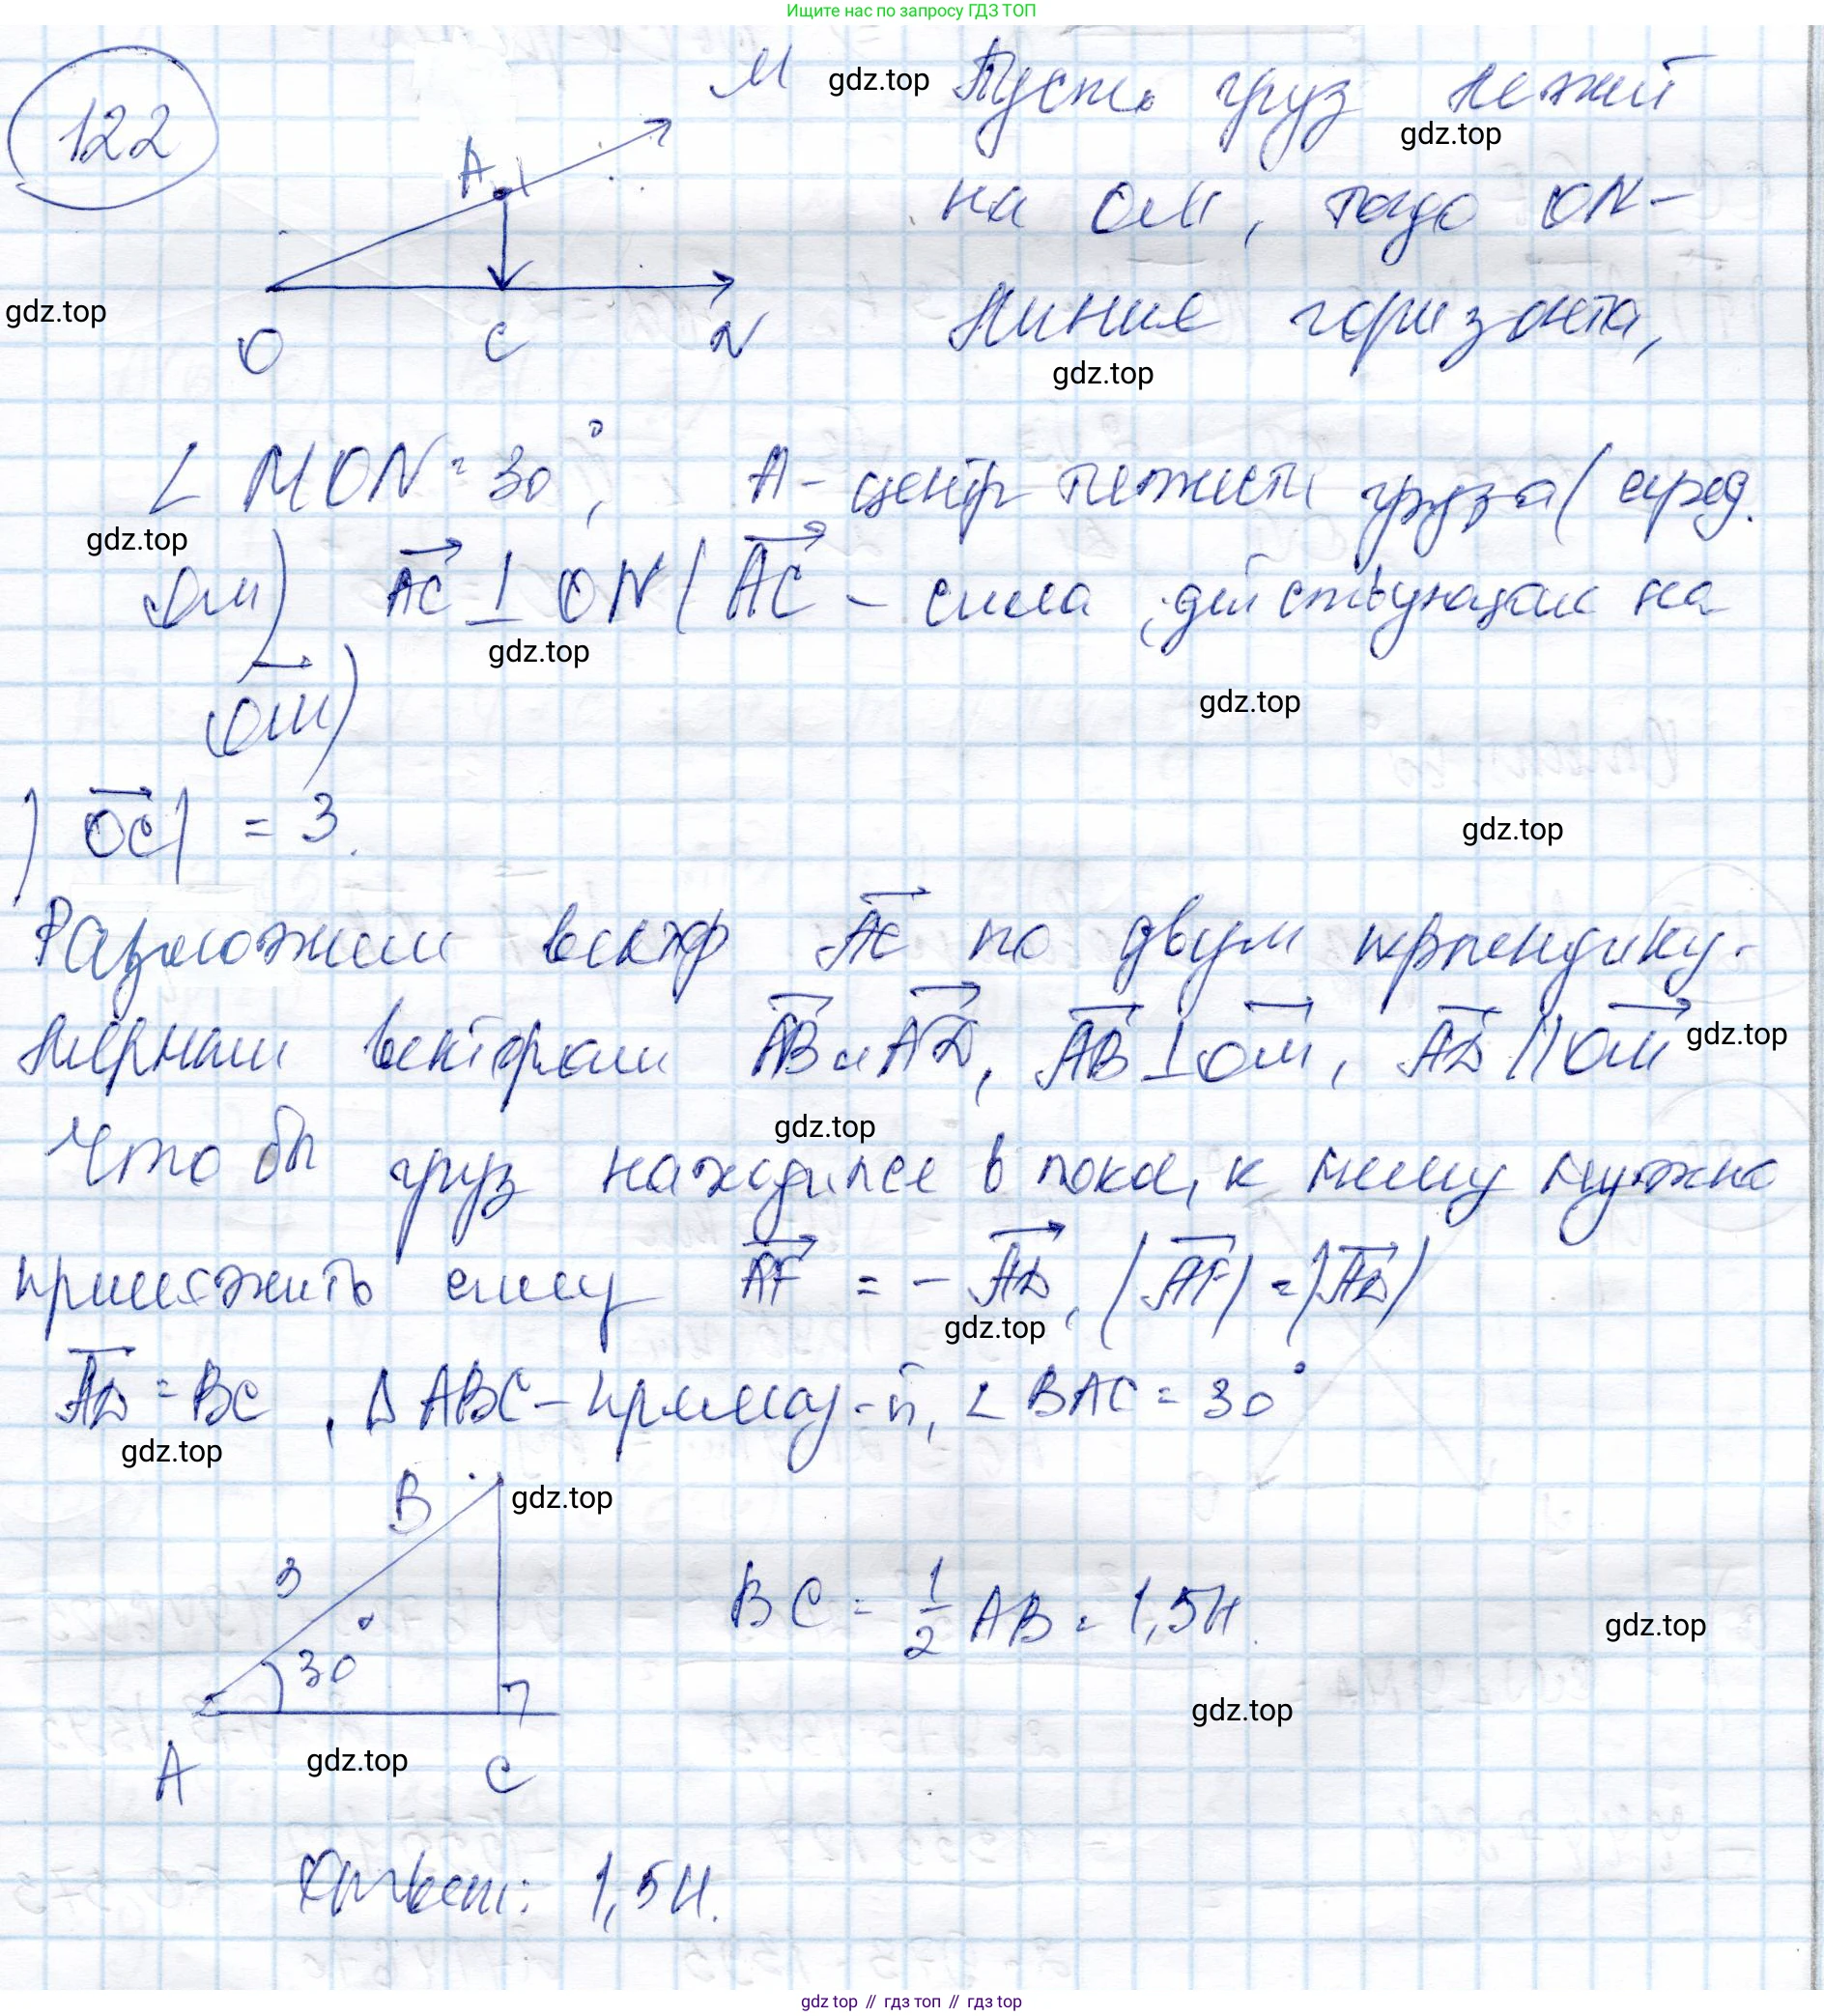 Ищите нас по запросу ГДЗ ТОП
122
M gdz.top Пусть груз лежит
A gdz.top
на OM, тогда ON -
gdz.top
O C N линия горизонта,
gdz.top
∠ MON = 30°, A - центр тяжести груза (серед.
gdz.top
OM) AC ⊥ ON (AC - сила, действующая на
gdz.top
OM)
gdz.top
|OC| = 3.
gdz.top
Разложим вектор AC по двум перпендику-
лярным векторам AB и AD, AB ⊥ OM, AD || OM
gdz.top
gdz.top
Что бы груз находился в покое, к нему нужно
приложить силу AF = - AD, |AF| = |AD|
gdz.top
AD = BC, Δ ABC - прямоуг-й, ∠ BAC = 30°
gdz.top
B gdz.top
3
BC = 1/2 AB = 1,5H.
gdz.top
30°
gdz.top
gdz.top
A C
Ответ: 1,5H.
gdz top // гдз топ // гдз top